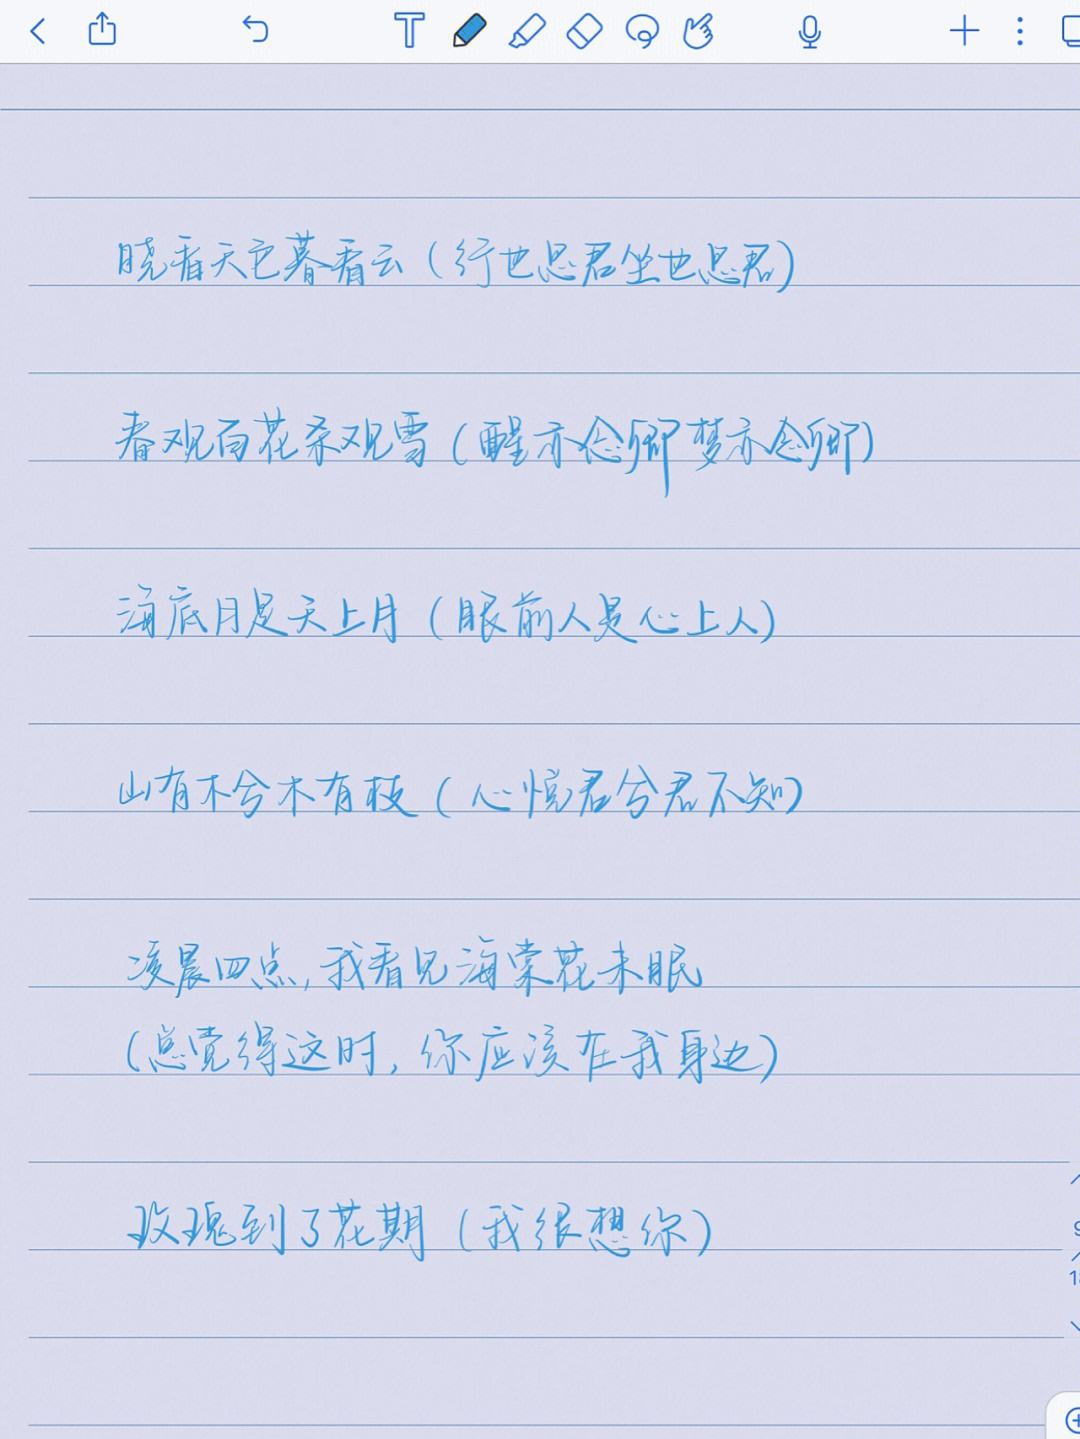 晓看天色暮看云（行也思君坐也思君）
春观百花冬观雪（醒亦念卿梦亦念卿）
海底月是天上月（眼前人是心上人）
山有木兮木有枝（心悦君兮君不知）
凌晨四点，我看见海棠花未眠
（总觉得这时，你应该在我身边）
玫瑰到了花期（我很想你）